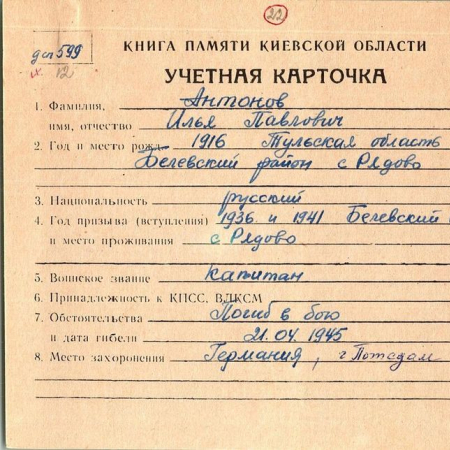 22
дсп 599
КНИГА ПАМЯТИ КИЕВСКОЙ ОБЛАСТИ
х. 12
УЧЕТНАЯ КАРТОЧКА
1. Фамилия, Антонов
имя, отчество Илья Павлович
2. Год и место рожд. 1916 Тульская область
Белевский район с Рядово
3. Национальность русский
4. Год призыва (вступления) 1936 и 1941 Белевский
и место проживания с Рядово
5. Воинское звание капитан
6. Принадлежность к КПСС, ВЛКСМ
7. Обстоятельства Погиб в бою
и дата гибели 21.04.1945
8. Место захоронения Германия, г Потсдам